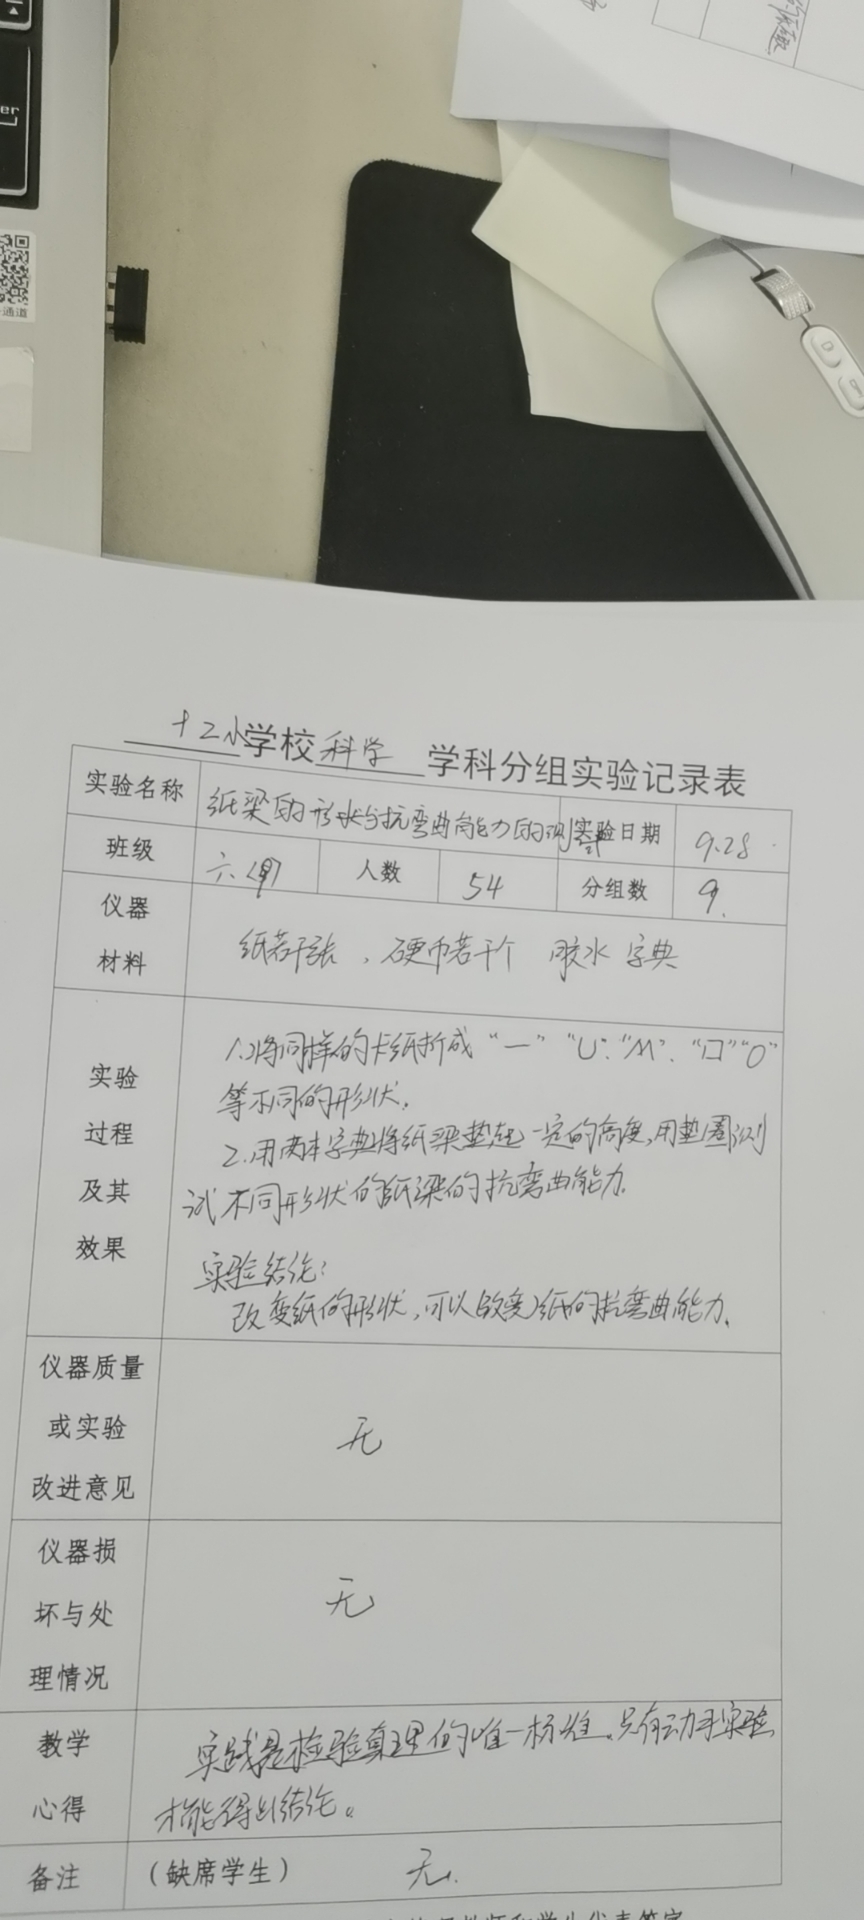 er
通道
十二小学校科学 学科分组实验记录表
实验名称 纸梁的形状与抗弯曲能力的测试 实验日期 9.28.
班级 六、 人数 54 分组数 9.
仪器
材料
纸若干张，硬币若干个 胶水 字典
实验
过程
及其
效果
1.将同样的卡纸折成“一”“U”.“M”.“口”“O”
等不同的形状.
2.用两本字典将纸梁垫起一定的高度,用垫圈测
试不同形状的纸梁的抗弯曲能力.
实验结论:
改变纸的形状,可以改变纸的抗弯曲能力.
仪器质量
或实验
改进意见
无
仪器损
坏与处
理情况
无
教学
心得
实践是检验真理的唯一标准.只有动手实验
才能得出结论。
备注 (缺席学生) 无.